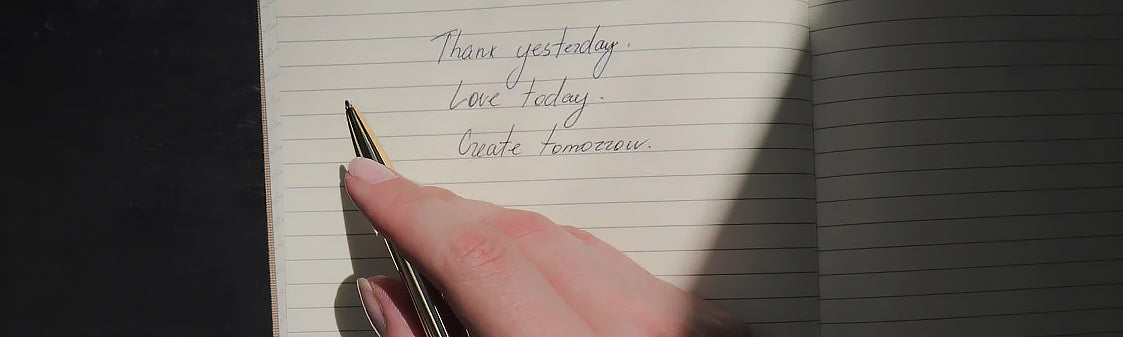 Thank yesterday.
Love today.
Create tomorrow.